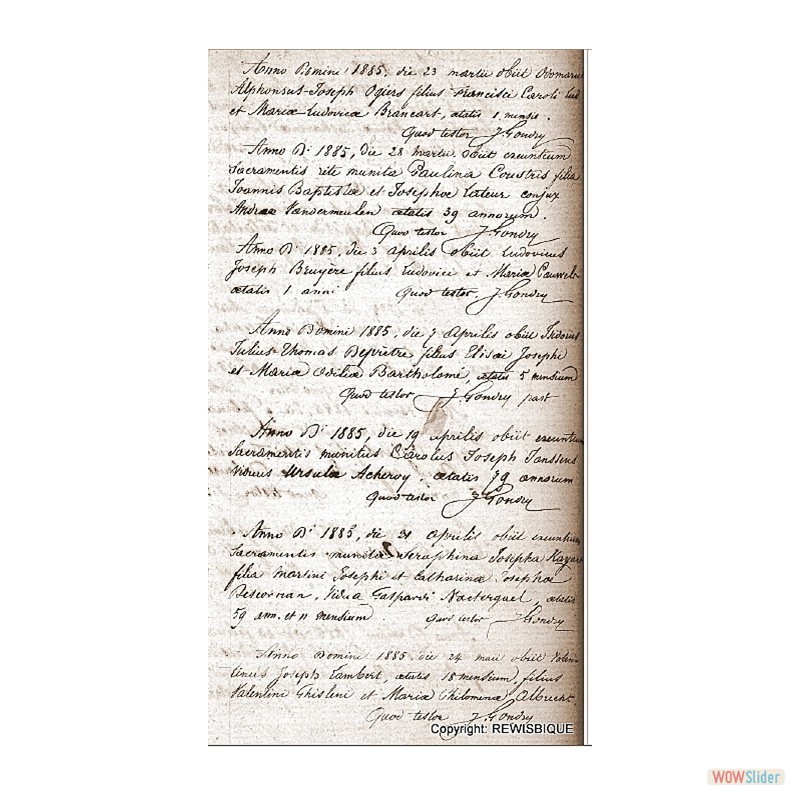 Anno Domini 1885, die 23 martii obiit Odomarus
Alphonsus-Joseph Ogiers filius Francisci Caroli Lud
et Mariæ Ludovicæ Brancart, ætatis 1 mensis.
Quod testor J. Gondry
Anno D.i 1885, die 28 martii obiit exeuntium
Sacramentis rite munita Paulina Coustris filia
Joannis Baptistæ et Josephæ Lateur conjux
Andreæ Vandermeulen ætatis 39 annorum.
Quod testor J. Gondry
Anno D.i 1885, die 3 aprilis obiit Ludovicus
Joseph Bruyère filius Ludovici et Mariæ Cauwels
ætatis 1 anni Quod testor J. Gondry
Anno Domini 1885, die 7 Aprilis obiit Isidorus
Julius-Thomas Deprêtre filius Elisæi Josephi
et Mariæ Odiliæ Bartholomé, ætatis 5 mensium
Quod testor J. Gondry past
Anno D.i 1885, die 19 aprilis obiit exeuntium
Sacramentis munitus Carolus Joseph Janssens
viduus Ursulæ Acheroy, ætatis 79 annorum
Quod testor J. Gondry
Anno D.i 1885, die aprilis obiit exeuntium
Sacramentis munita Seraphina Josepha
filia Martini Josephi et Catharinæ Josephæ
Descornan, Vidua Gaspardi Nacterguel, ætatis
59 ann. et 11 mensium. Quod testor J. Gondry
Anno Domini 1885, die 24 maii obiit Valen-
tinus Joseph Lambert, ætatis 18 mensium, filius
Valentini Ghisleni et Mariæ Philomenæ Albrecht.
Quod testor J. Gondry
Copyright: REWISBIQUE
WOWSlider